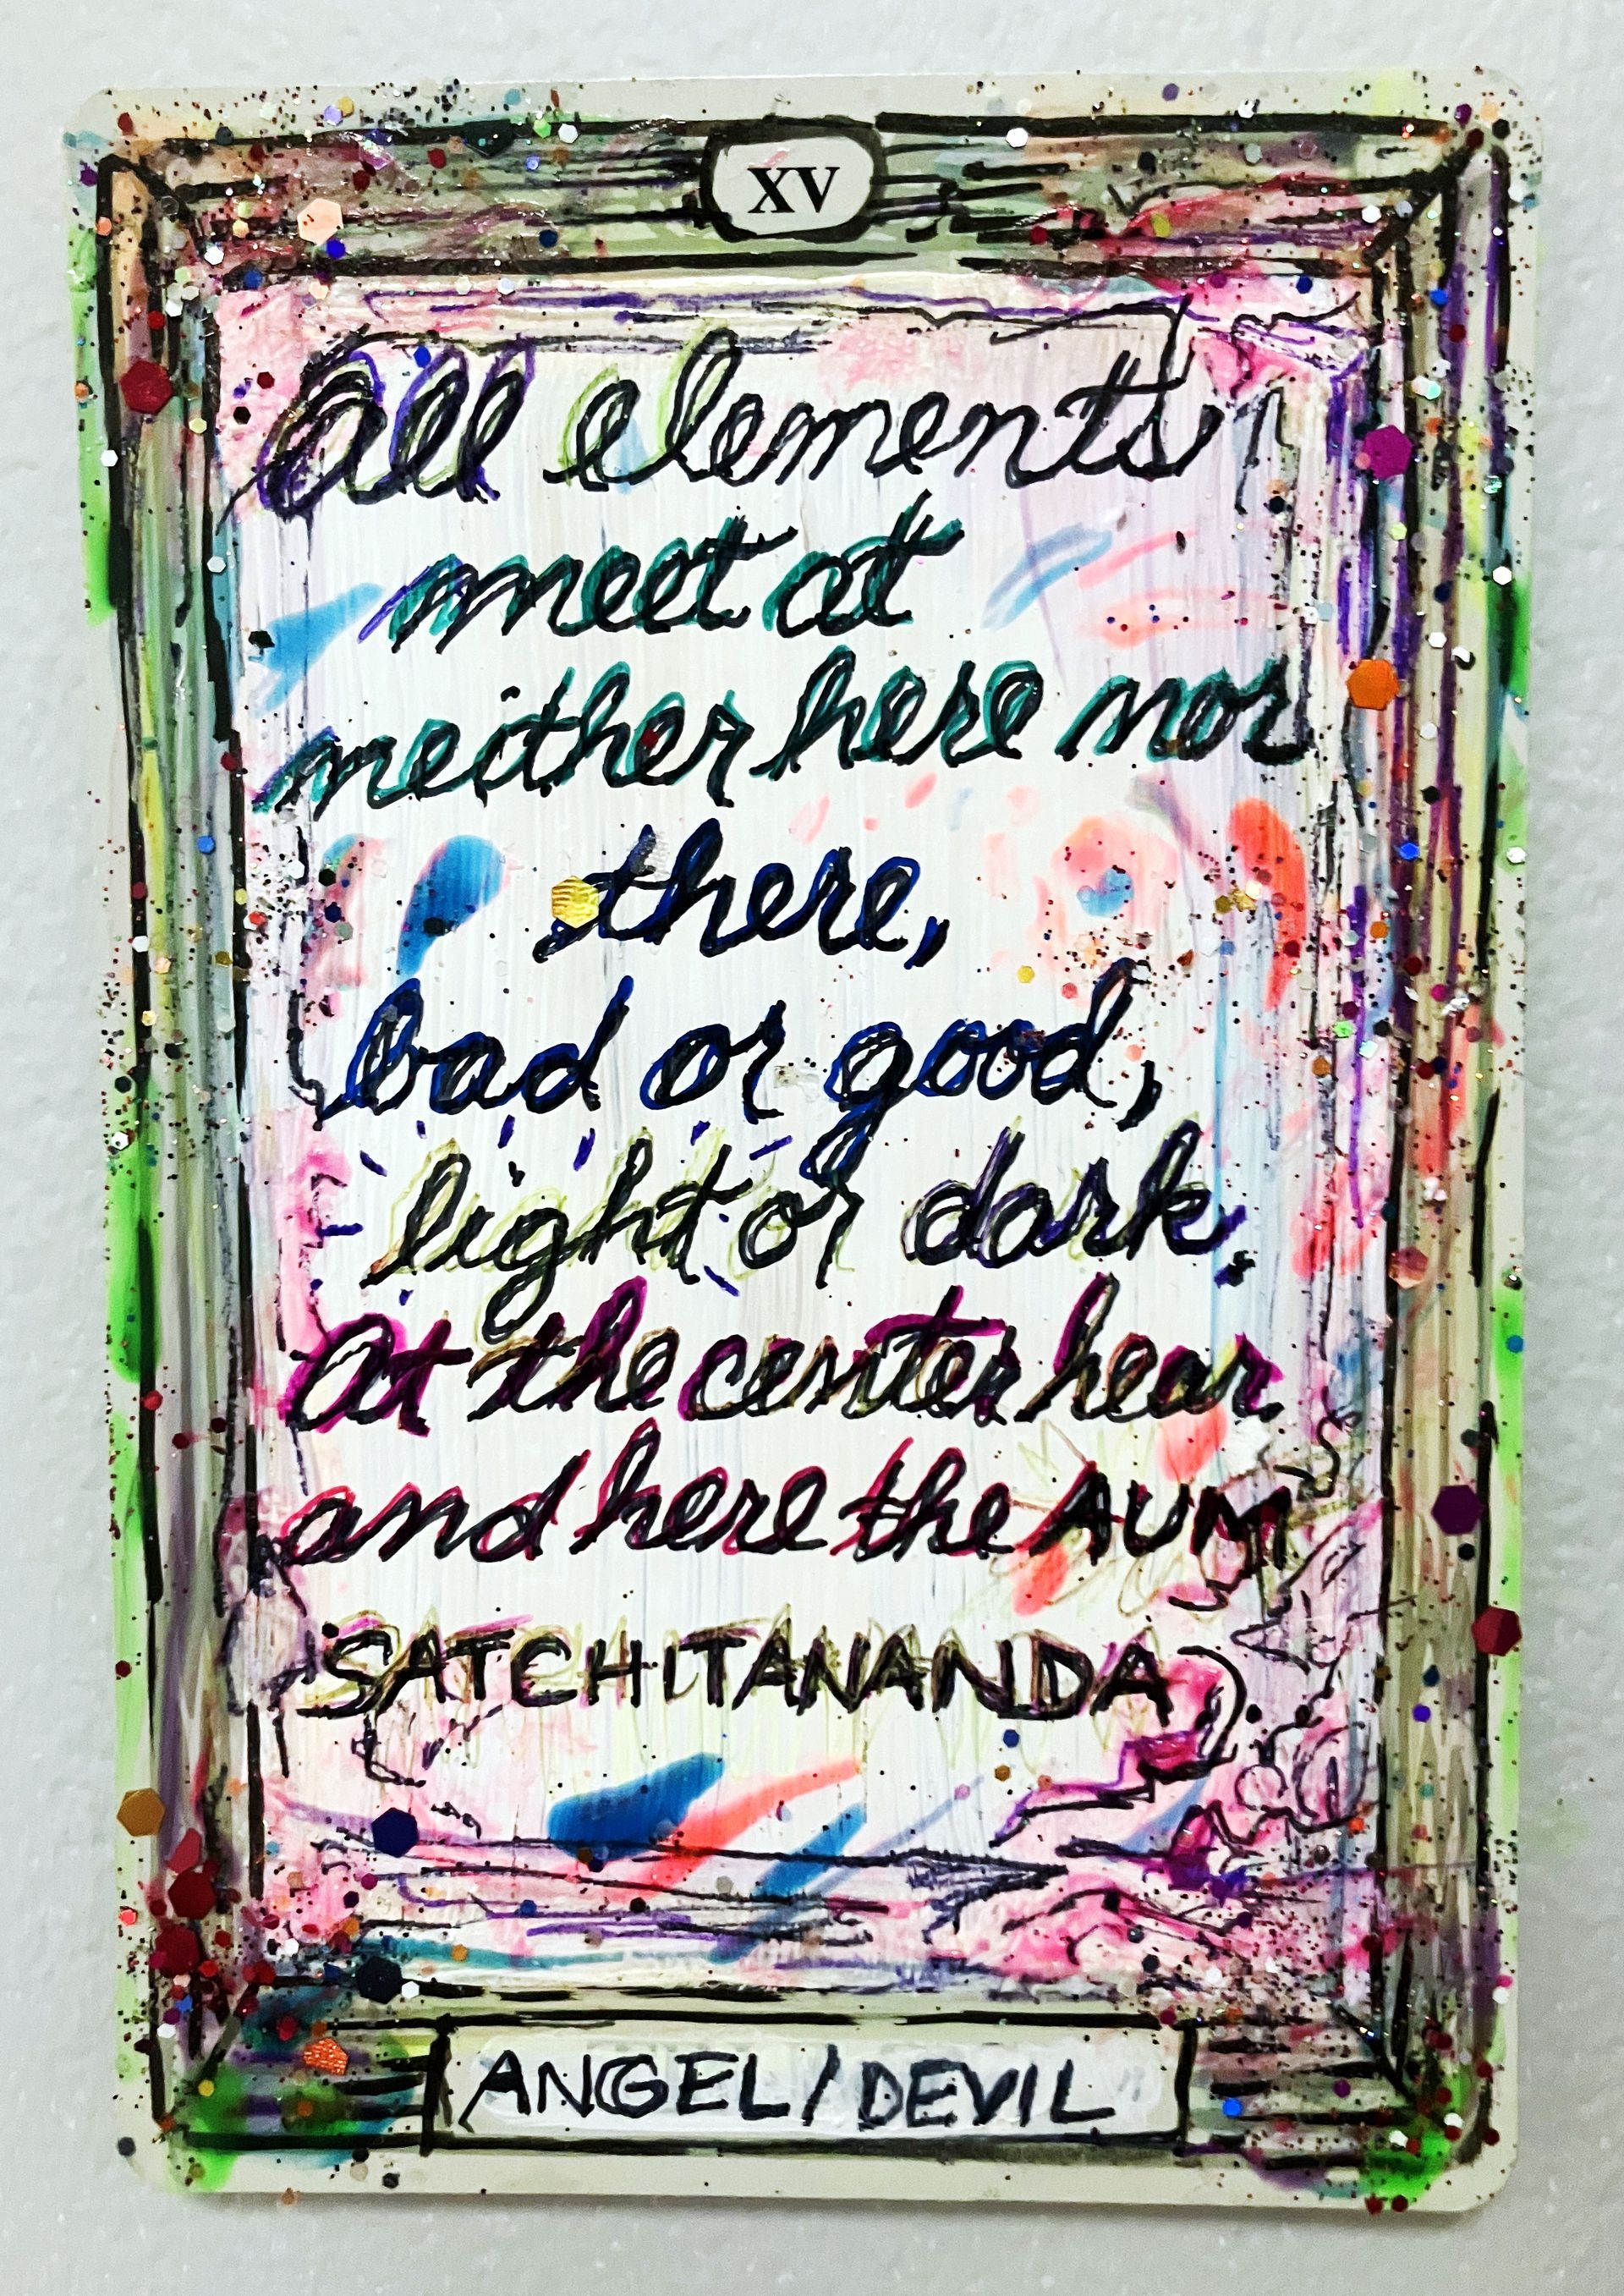 XV
All elements
meet at
neither here nor
there,
bad or good,
light or dark,
At the center hear
and here the AUM
SATCHITANANDA
ANGEL/DEVIL